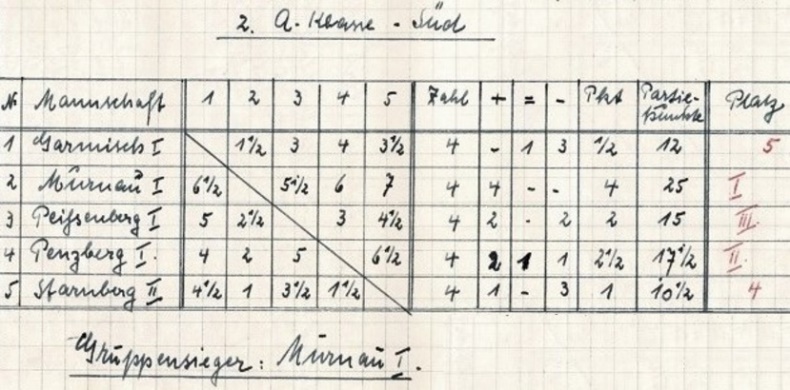 2. A-Klasse - Süd
№ Mannschaft 1 2 3 4 5 Zahl + = - Pkt Partie-punkte Platz
1 Garmisch I 1½ 3 4 3½ 4 - 1 3 ½ 12 5
2 Murnau I 6½ 5½ 6 7 4 4 - - 4 25 I
3 Peißenberg I 5 2½ 3 4½ 4 2 - 2 2 15 III.
4 Penzberg I. 4 2 5 6½ 4 2 1 1 2½ 17½ II.
5 Starnberg II 4½ 1 3½ 1½ 4 1 - 3 1 10½ 4
Gruppensieger: Murnau I.